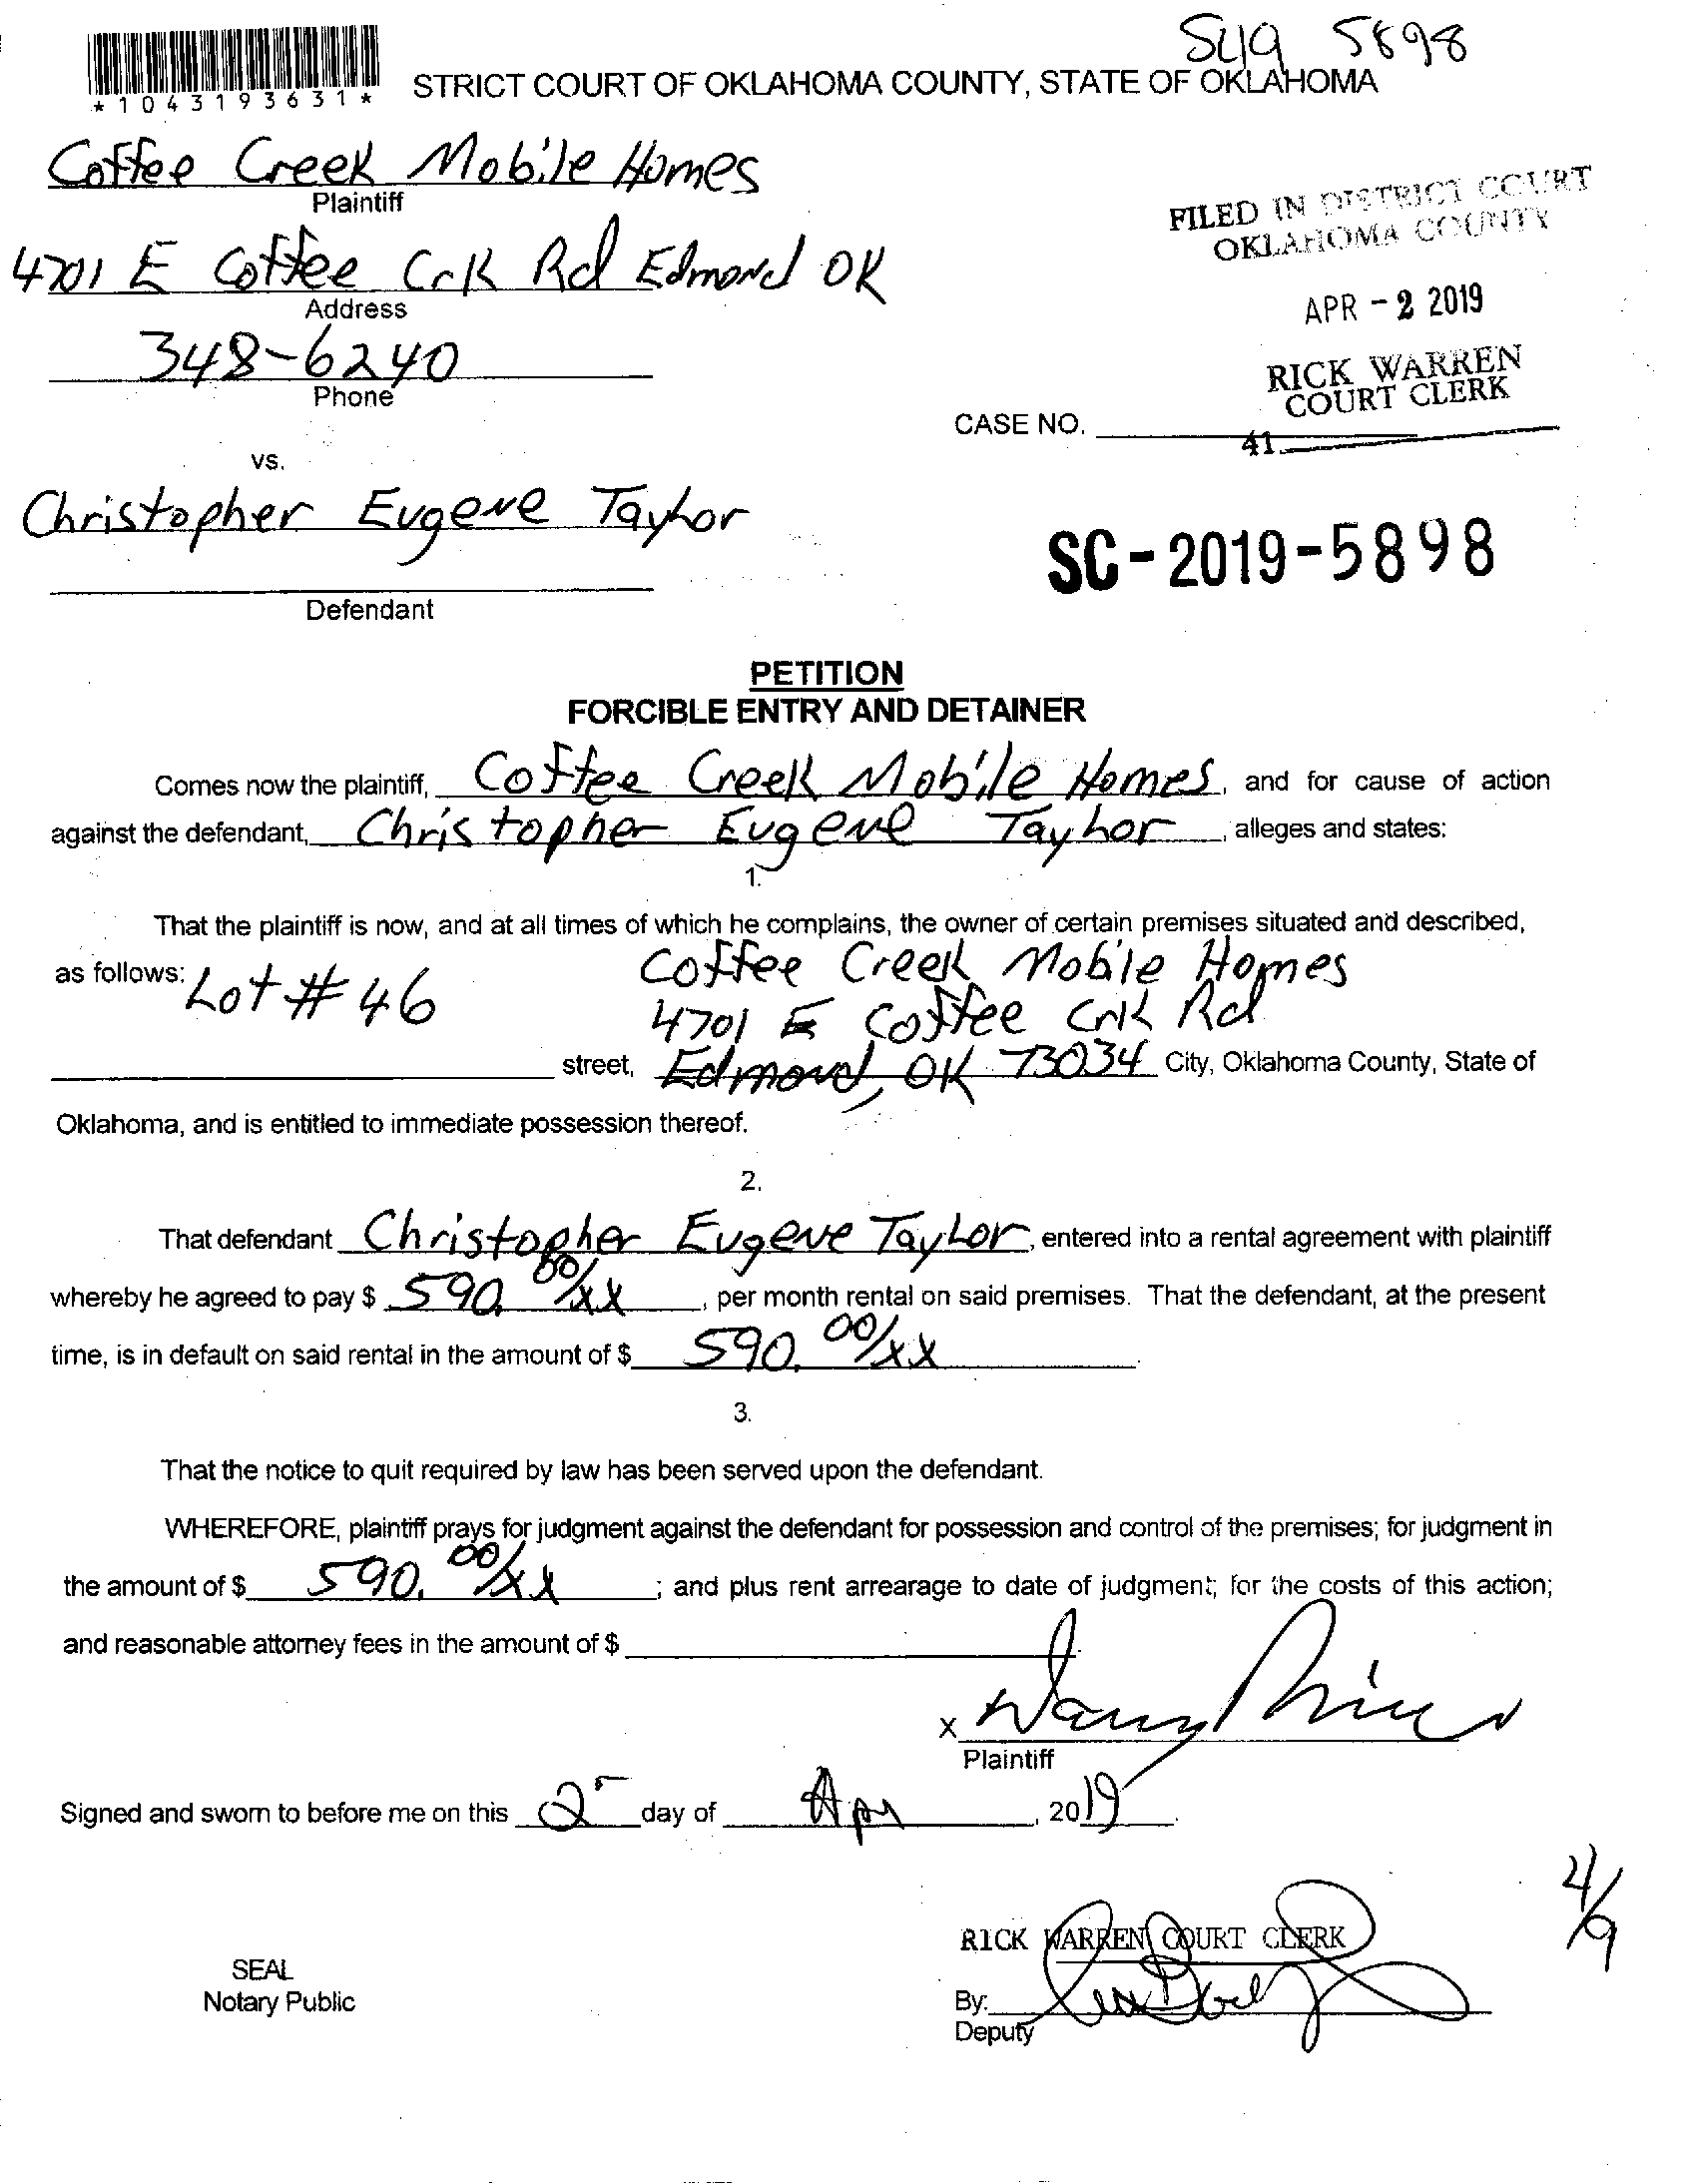 5898
*1043193631*
STRICT COURT OF OKLAHOMA COUNTY, STATE OF OKLAHOMA
Coffee Creek Mobile Homes
Plaintiff
4701 E Coffee Crk Rd Edmond OK
Address
348-6240
Phone
FILED IN DISTRICT COURT
OKLAHOMA COUNTY
APR - 2 2019
RICK WARREN
COURT CLERK
CASE NO.
41
vs.
Christopher Eugene Taylor
Defendant
SC-2019-5898
PETITION
FORCIBLE ENTRY AND DETAINER
Comes now the plaintiff, Coffee Creek Mobile Homes, and for cause of action
against the defendant, Christopher Eugene Taylor, alleges and states:
1.
That the plaintiff is now, and at all times of which he complains, the owner of certain premises situated and described,
as follows: Lot # 46 Coffee Creek Mobile Homes
4701 E Coffee Crk Rd
street, Edmond, OK 73034 City, Oklahoma County, State of
Oklahoma, and is entitled to immediate possession thereof.
2.
That defendant Christopher Eugene Taylor, entered into a rental agreement with plaintiff
whereby he agreed to pay $ 590. 00/xx, per month rental on said premises. That the defendant, at the present
time, is in default on said rental in the amount of $ 590. 00/xx.
3.
That the notice to quit required by law has been served upon the defendant.
WHEREFORE, plaintiff prays for judgment against the defendant for possession and control of the premises; for judgment in
the amount of $ 590. 00/xx; and plus rent arrearage to date of judgment; for the costs of this action;
and reasonable attorney fees in the amount of $
X
Plaintiff
Signed and sworn to before me on this 2 day of Apr, 2019.
4/9
RICK WARREN COURT CLERK
SEAL
Notary Public
By:
Deputy